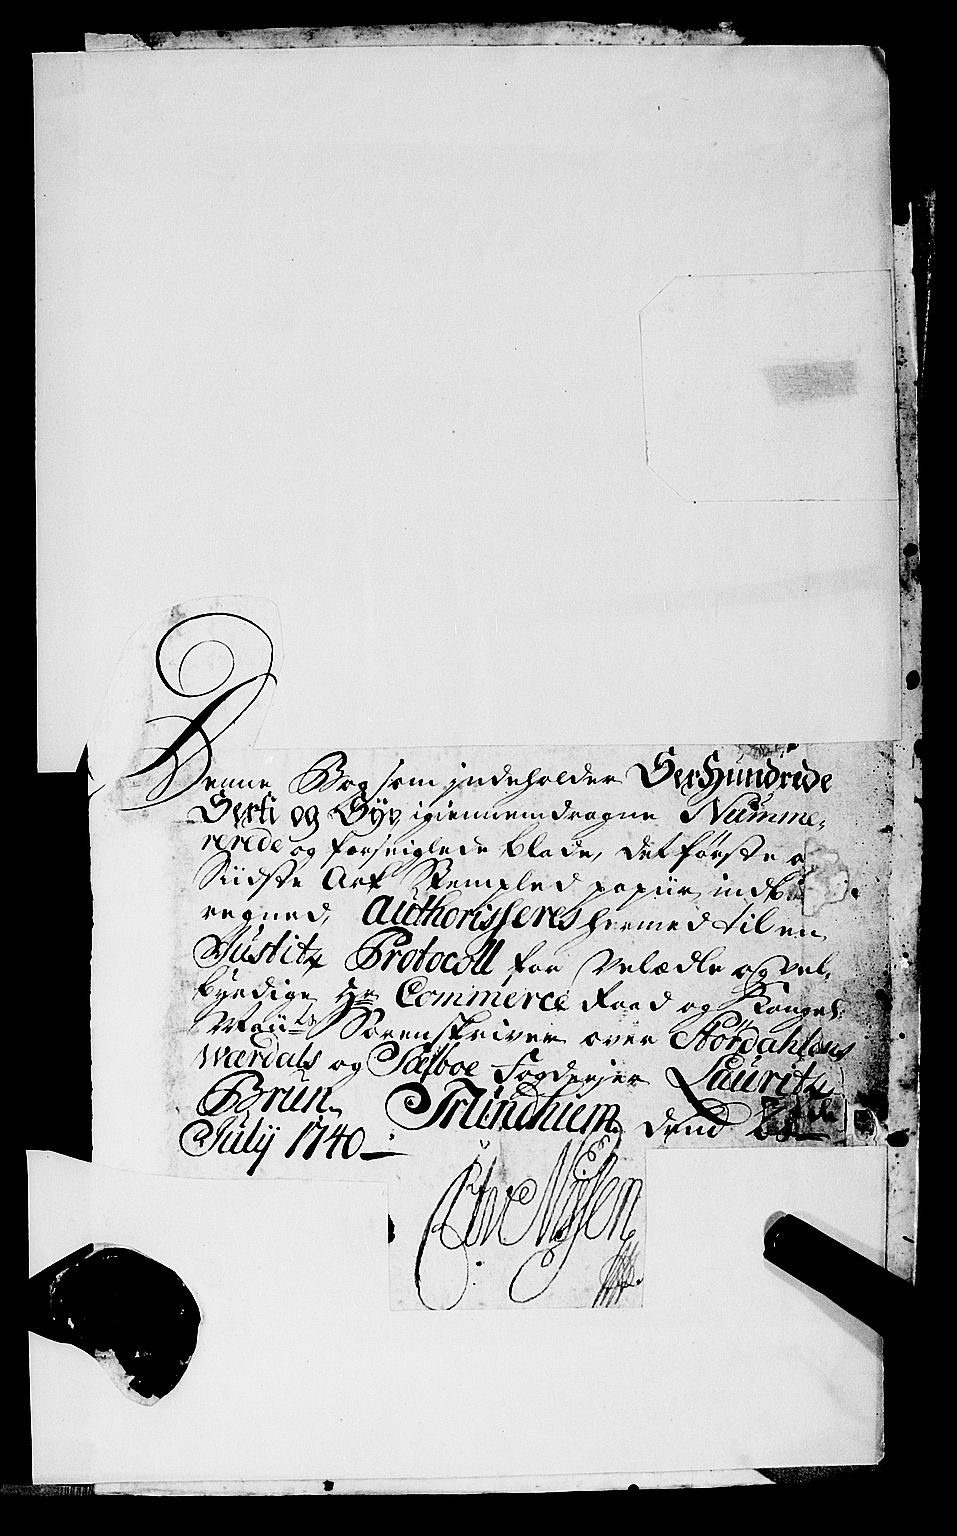 Denne Bog som indeholder Sex Hundrede
Sexti og Syv igiennemdragne Numme-
rerede og forseiglede blade, det første o
Siidste Ark Stempled papiir, indbe
regned, Authorisseres hermed til en
Justitz Protocoll for Velædle og Vel-
byrdige Hr Commerce Raad og Kongel:
Maÿts Sorenskriver over Størdahlens
Værdals og Sælboe Fogderjer Lauritz
Brun. Trundhiem dend
Julÿ 1740